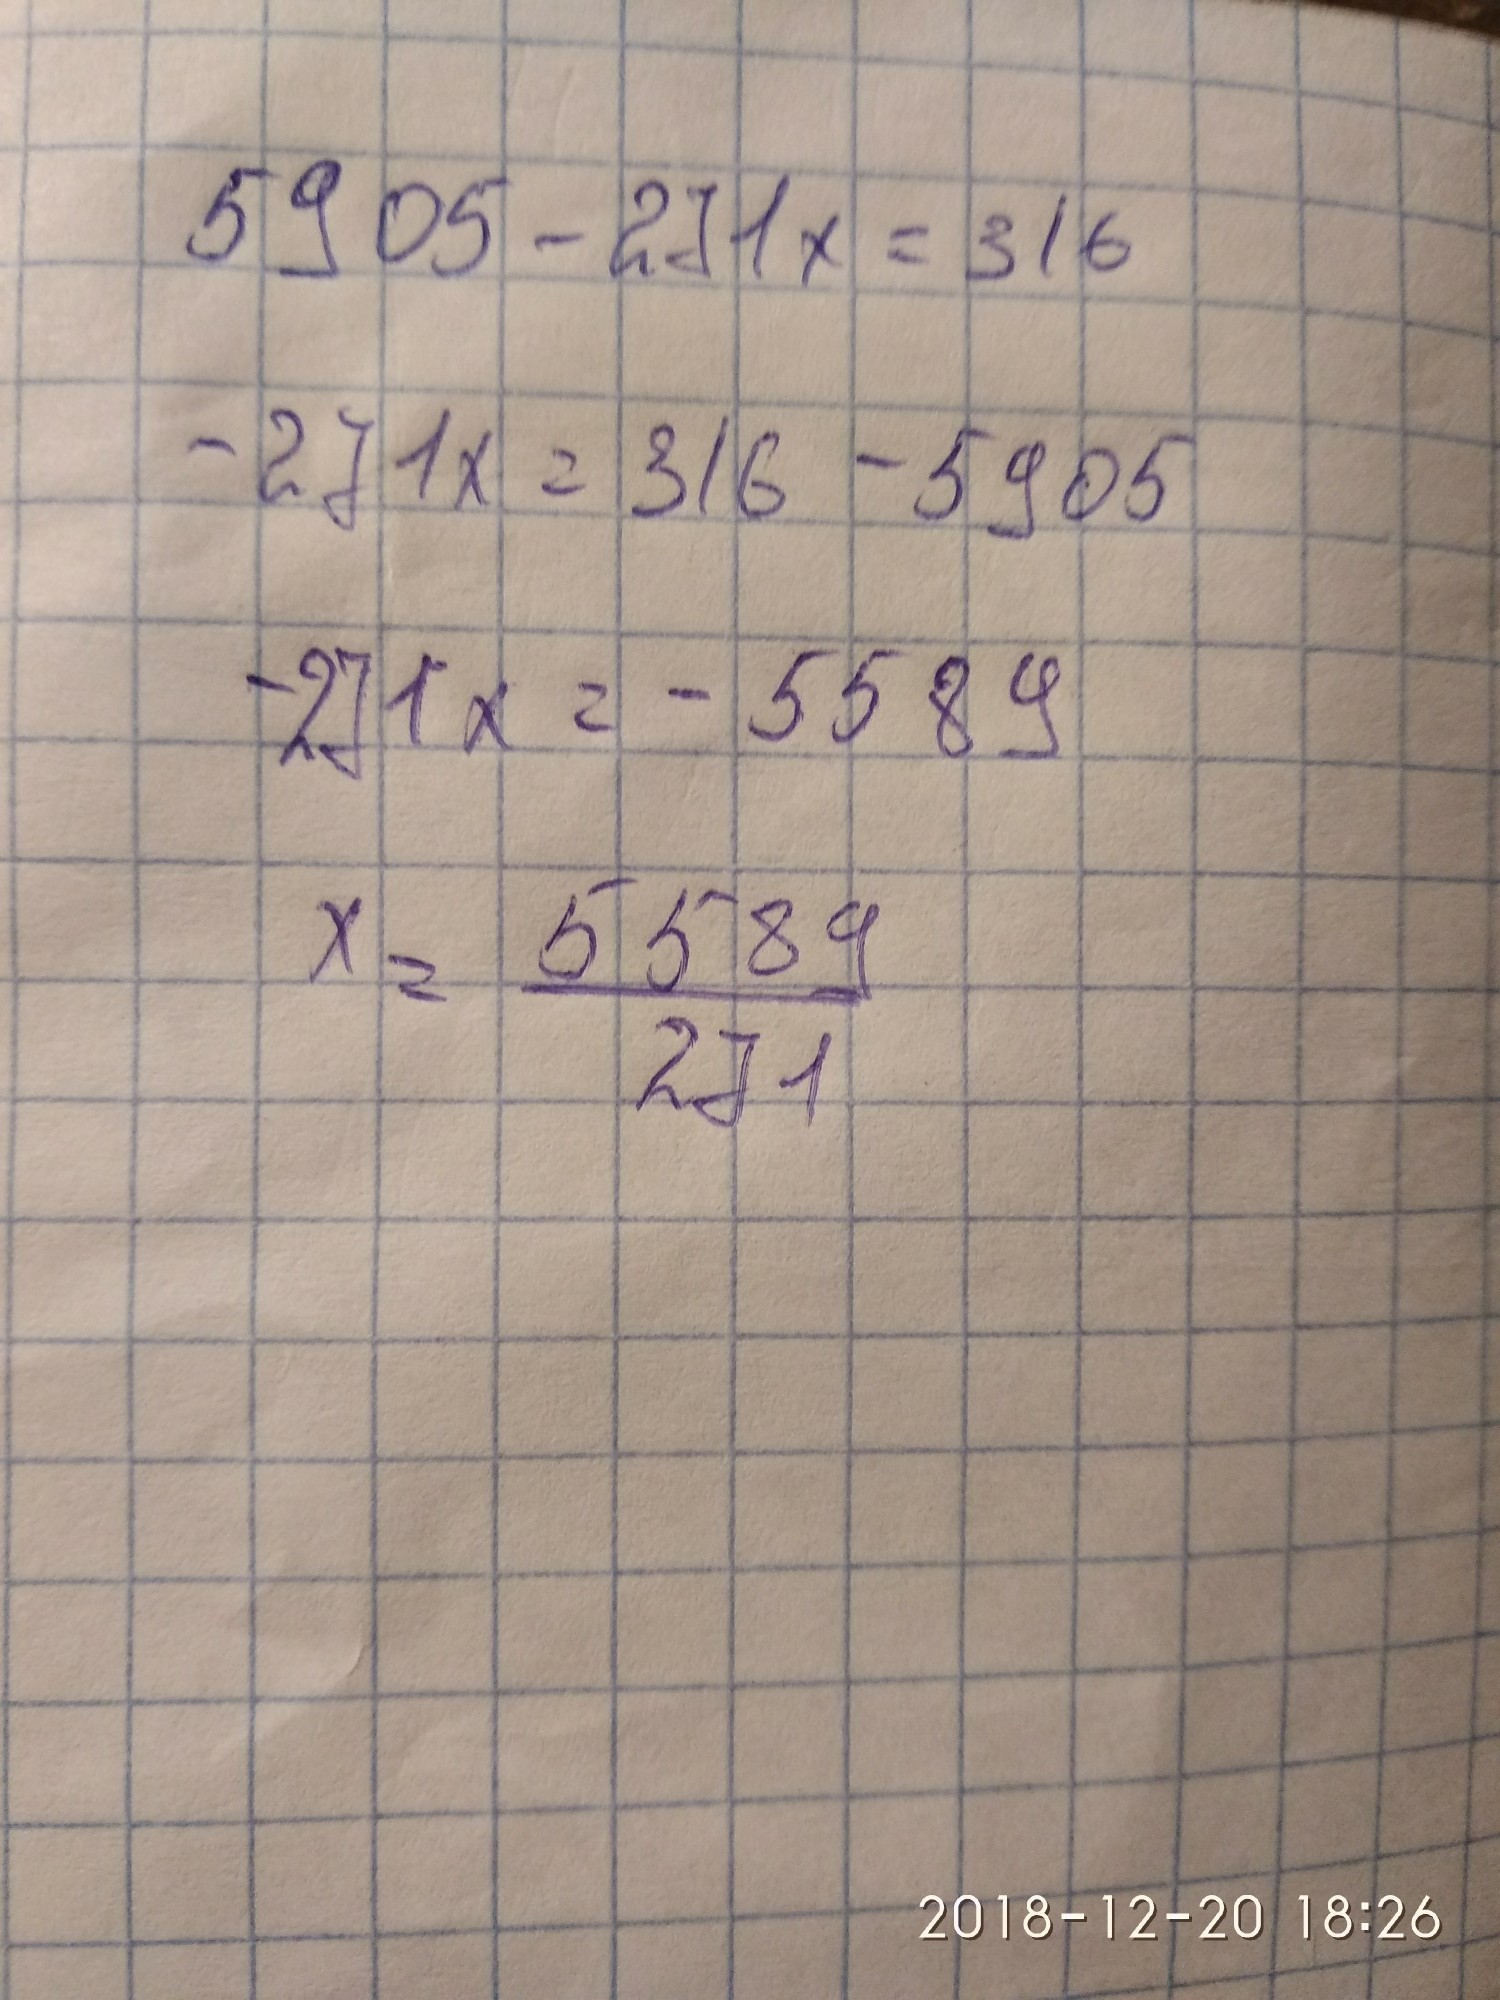 5905-271x=316
-271x=316-5905
-271x=-5589
x=5589/271
2018-12-20 18:26